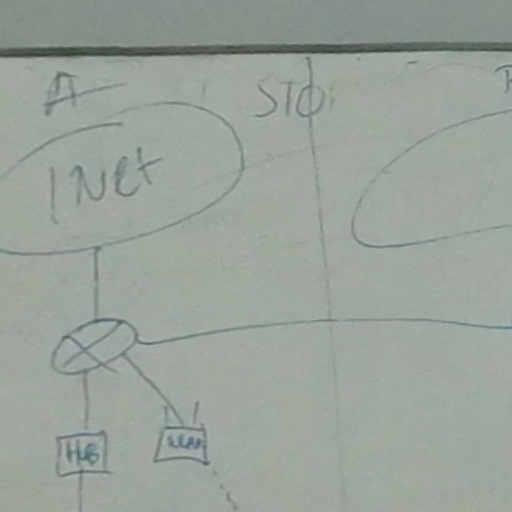 A
STO
INet
HUB
WLAN